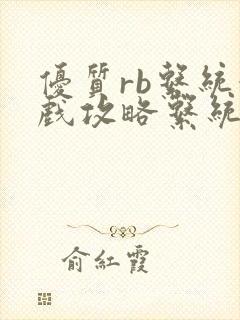 優質rb繫統
戲攻略繫統
俞紅霞